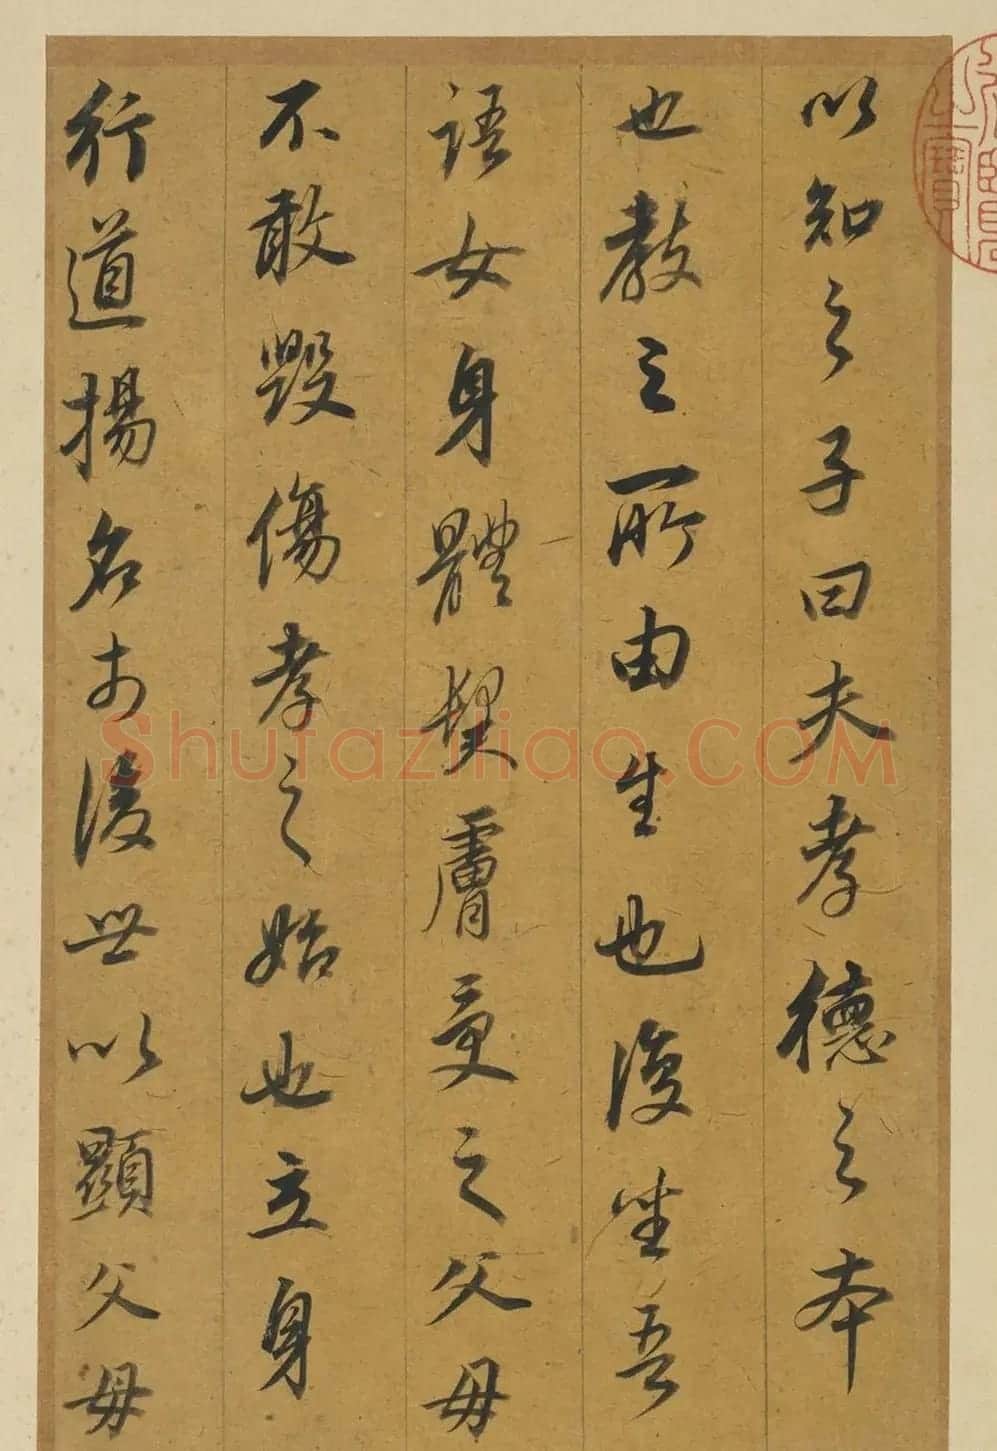 以知之子曰夫孝德之本
也教之所由生也復坐吾
語女身體髮膚受之父母
不敢毀傷孝之始也立身
行道揚名於後世以顯父母
Shufaziliao.COM